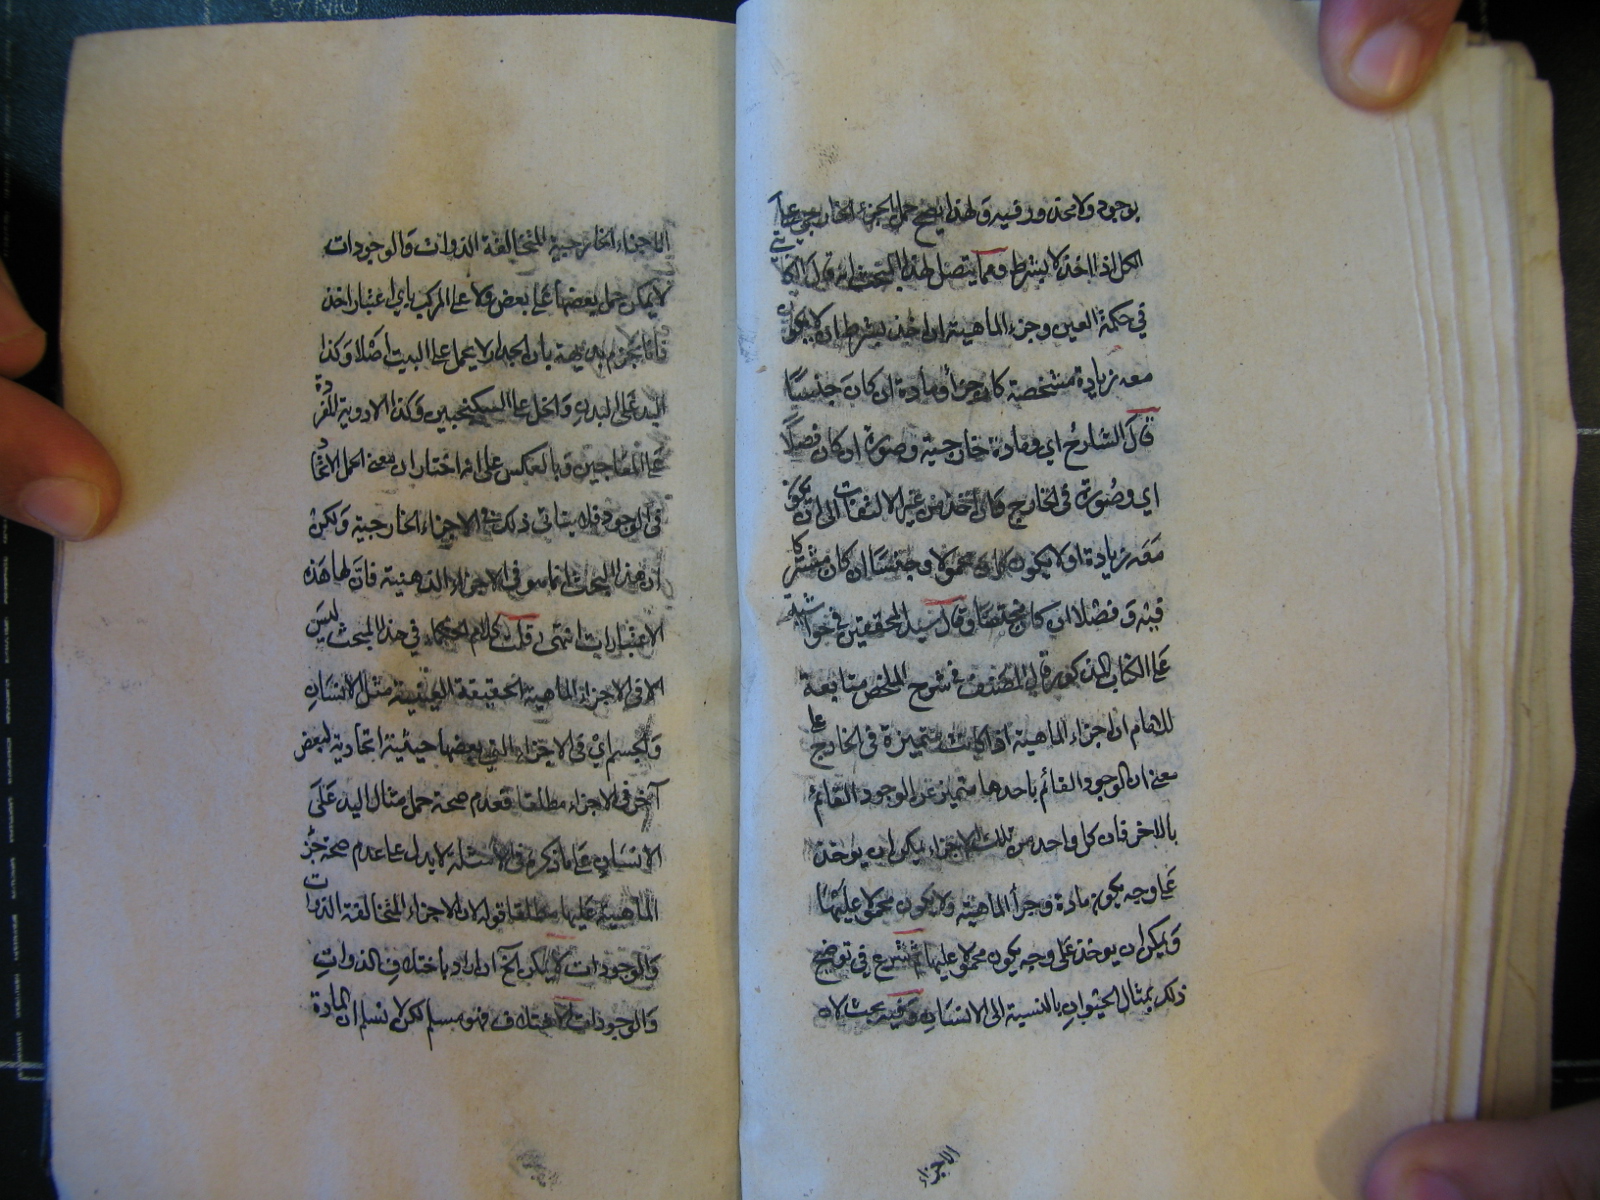 بوجود ولا محذور فيه ولهذا يصح حمل الجزء الخارجي على
الكل اذا اخذ لا بشرط ومما يتصل لهذا البحث انه قال الكاتبي
في حكمة العين وجزء الماهية ان اخذ بشرط ان لا يكون
معه زيادة مشخصة كان جزأ ومادة ان كان جنسيًا
قال الشارح اي ومادة خارجية وصورة ان كان فصلًا
اي وصورة في الخارج وان اخذ من غير الالتفات الى ان يكون
معه زيادة او لا يكون كان محمولا وجنسا ان كان مشتركا
فيه وفصلا ان كان مختصا وقال سيد المحققين في حواشيه
على الكتاب المذكور قال المصنف في شرح الملخص متابعة
للامام ان اجزاء الماهية اذا كانت متميزة في الخارج على
معنى ان الوجود القائم باحدها متميز عن الوجود القائم
بالاخر فان كل واحد من تلك الاجزاء يمكن ان يوخذ
على وجه يكون مادة وجزأ الماهية ولا يكون محمولا عليها
ويمكن ان يوخذ على وجه يكون محمولا عليها ثم شرع في توضيح
ذلك بمثال الحيوان بالنسبة الى الانسان وفيه بحث لان
الاجزاء
الاجزاء الخارجية المتخالفة الذوات والوجودات
لا يمكن حمل بعضها على بعض ولا على المركب باي اعتبار اخذ
فانا نجزم بديهة بان الجدار لا يحمل على البيت اصلا وكذا
اليد على البدن والخل على السكنجبين وكذا الادوية المفردة
على المعاجين وبالعكس على انه اختار ان معنى الحمل الاتحاد
في الوجود فلا يتاتى ذلك في الاجزاء الخارجية ولكن
ان هذا البحث انما هو في الاجزاء الذهنية فان لها هذه
الاعتبارات انتهى قلت كلام الحكماء في هذا المبحث ليس
الا في الاجزاء الماهية الحقيقة مثل الانسان
والجسم اي في الاجزاء التي بعضها حيثية اتحادية لبعض
آخر في الاجزاء مطلقا فعدم صحة حمل مثال اليد على
الانسان على ما ذكره في الامثلة لا يدل على عدم صحة جزء
الماهية عليها مطلقا قوله لان الاجزاء المتخالفة الذوات
والوجودات لا يمكن الخ ان اراد باختلاف الذوات
والوجودات الاختلاف فهو مسلم لكن لا نسلم ان المادة